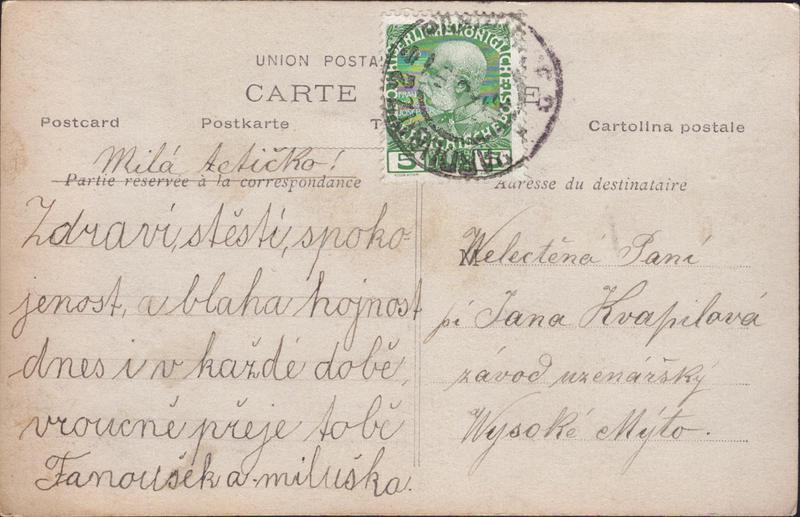 UNION POSTA
CARTE
Postcard Postkarte Cartolina postale
Milá tetičko!
Partie réservée à la correspondance
Adresse du destinataire
Zdraví, stěstí, spoko-
jenost, a blaha hojnost
dnes i v každé době,
vroucně přeje tobě
Fanoušek a miluška.
Welectěná Paní
pí Jana Kvapilová
závod uzenářský
Wysoké Mýto.
5